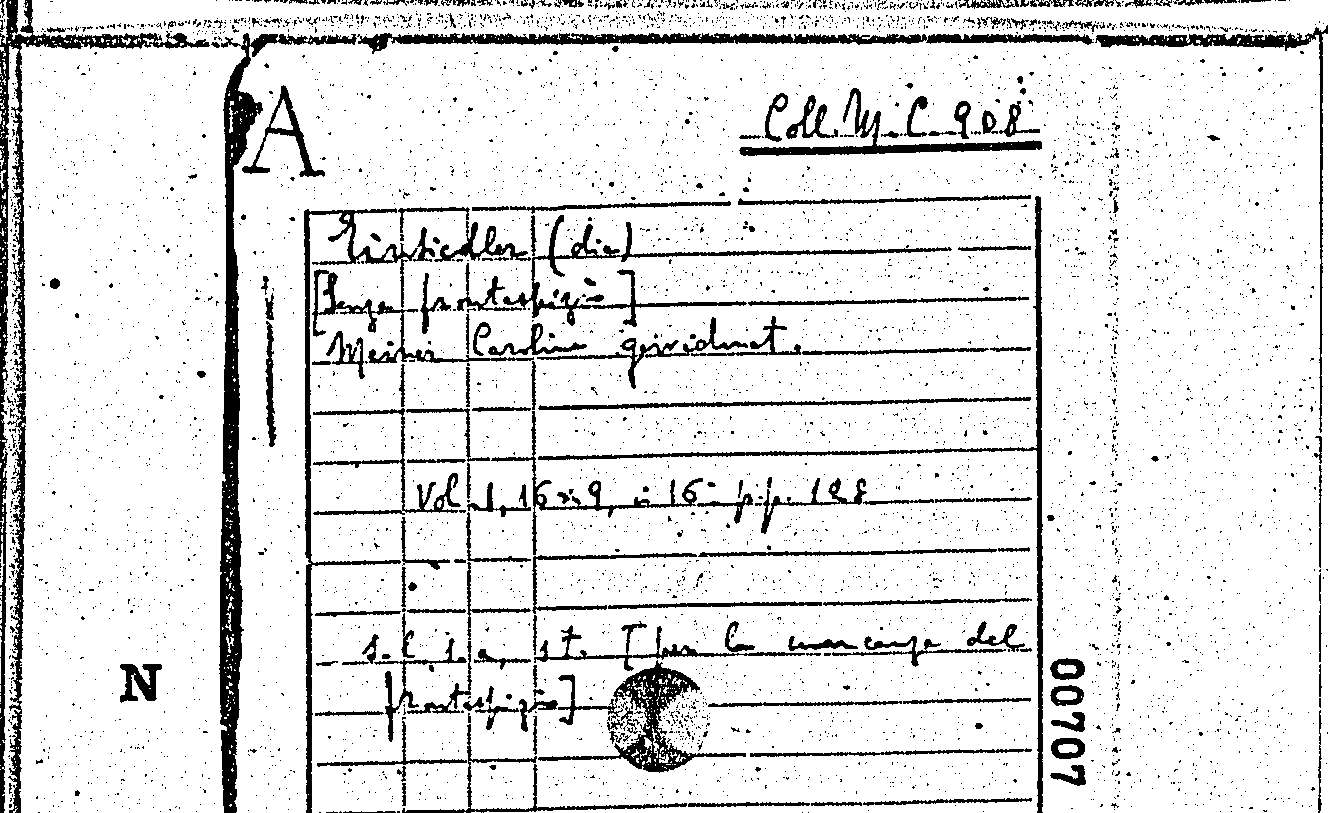 A
Coll. M. C. 908
Einsiedler (die)
[Senza frontespizio]
Meiner Caroline gewidmet.
Vol. 1, 16x9, in 16° p.p. 128
s.l., s.a., s.t. [per la mancanza del
frontespizio]
N
00707